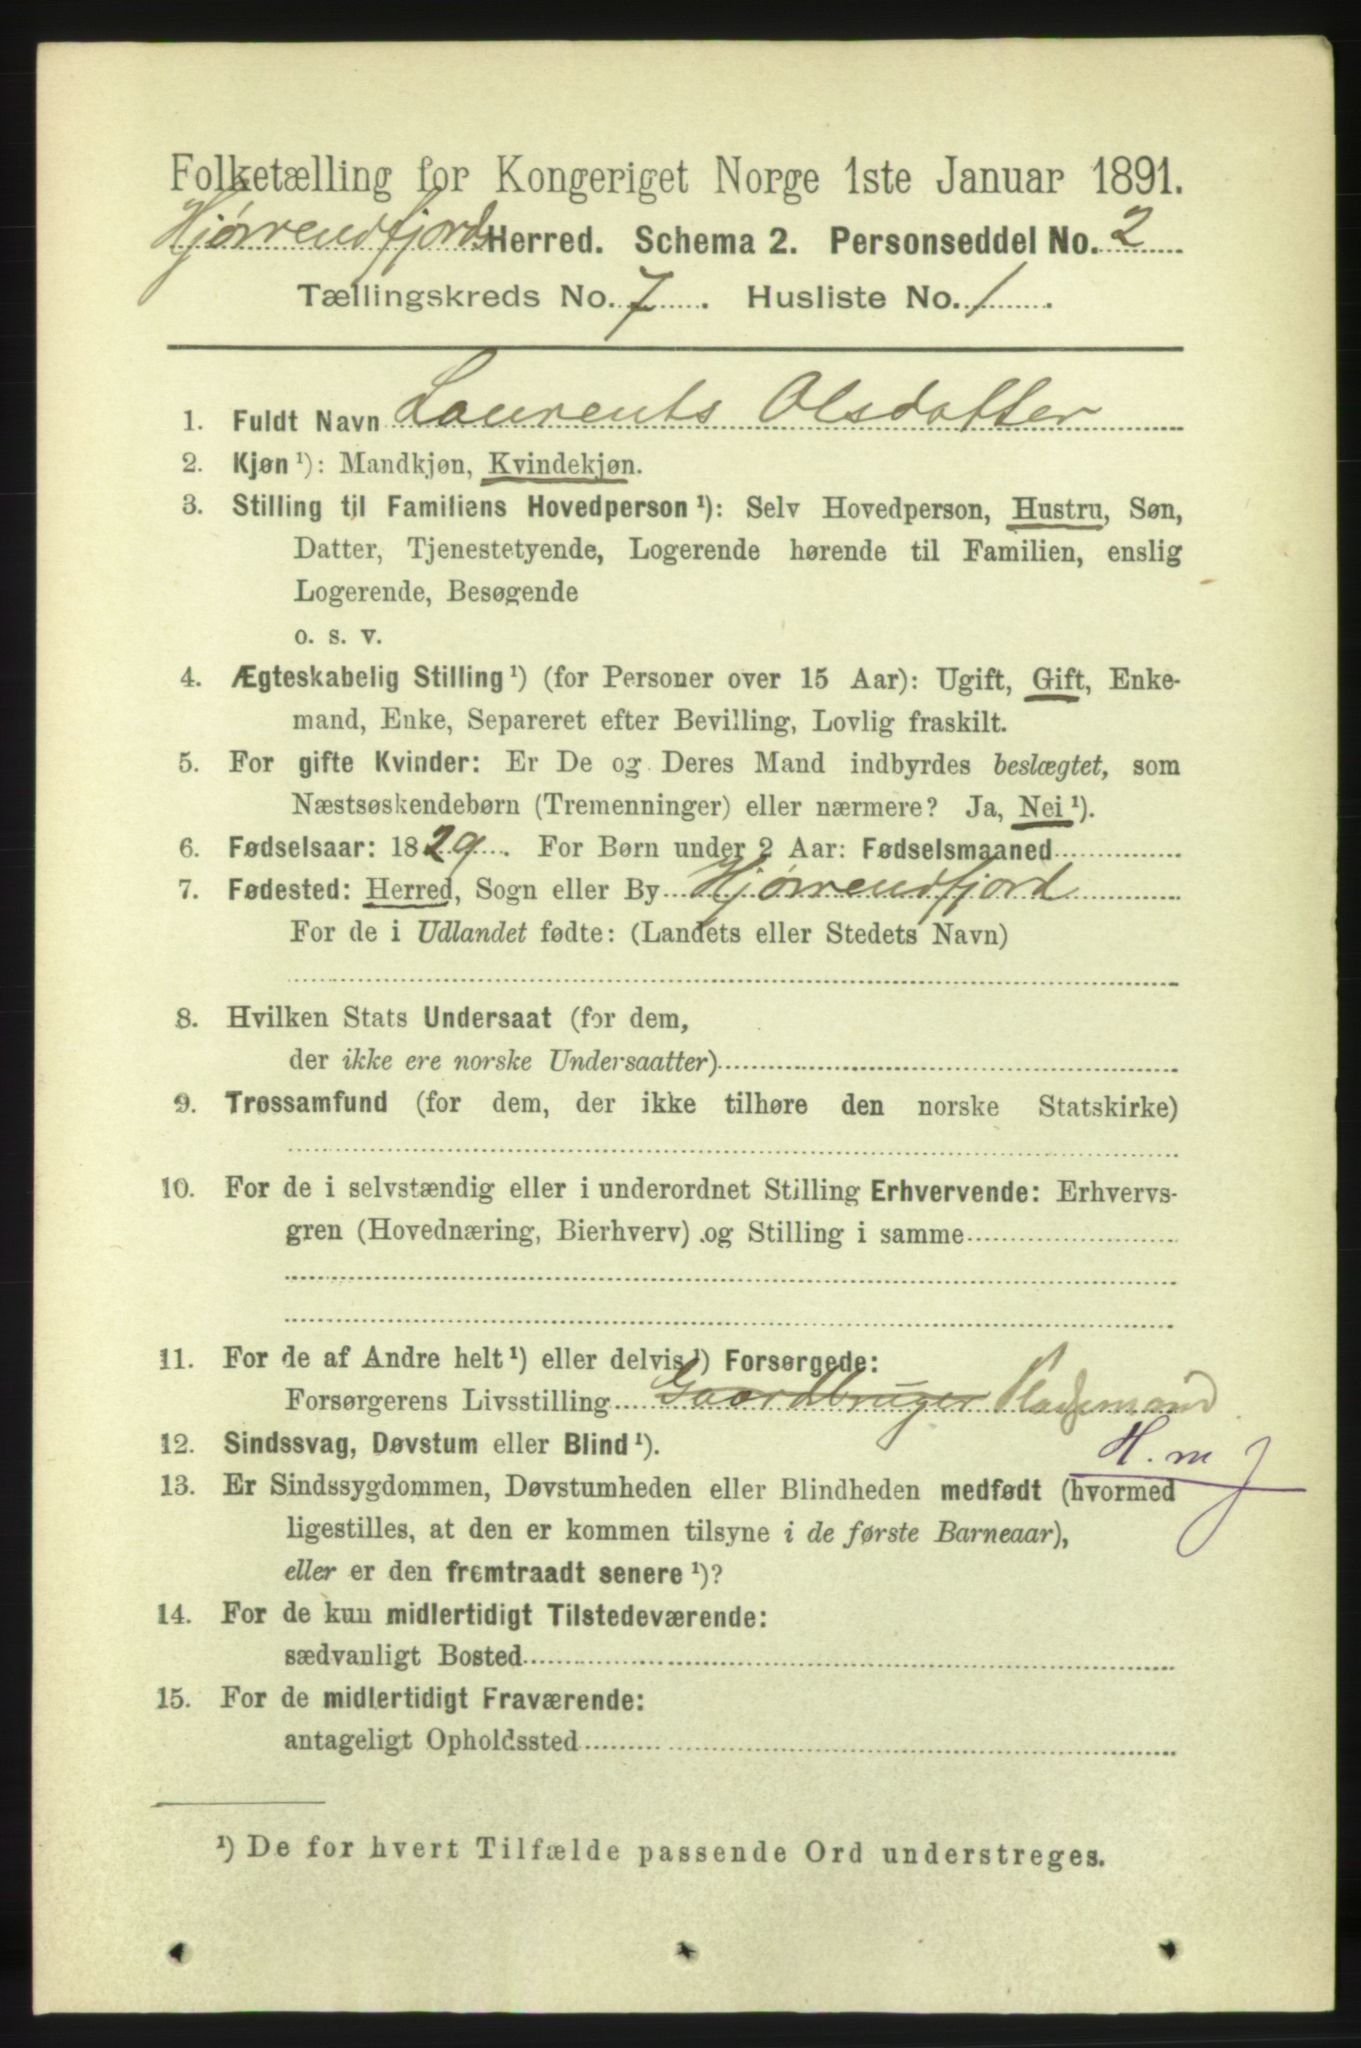 Folketælling for Kongeriget Norge 1ste Januar 1891.
Hjørrendfjords Herred. Schema 2. Personseddel No. 2
Tællingskreds No. 7. Husliste No. 1.
1. Fuldt Navn Laurents Olsdatter
2. Kjøn ¹): Mandkjøn, Kvindekjøn.
3. Stilling til Familiens Hovedperson ¹): Selv Hovedperson, Hustru, Søn,
Datter, Tjenestetyende, Logerende hørende til Familien, enslig
Logerende, Besøgende
o. s. v.
4. Ægteskabelig Stilling ¹) (for Personer over 15 Aar): Ugift, Gift, Enke-
mand, Enke, Separeret efter Bevilling, Lovlig fraskilt.
5. For gifte Kvinder: Er De og Deres Mand indbyrdes beslægtet, som
Næstsøskendebørn (Tremenninger) eller nærmere? Ja, Nei ¹).
6. Fødselsaar: 1829. For Børn under 2 Aar: Fødselsmaaned
7. Fødested: Herred, Sogn eller By Hjørrendfjord
For de i Udlandet fødte: (Landets eller Stedets Navn)
8. Hvilken Stats Undersaat (for dem,
der ikke ere norske Undersaatter)
9. Trossamfund (for dem, der ikke tilhøre den norske Statskirke)
10. For de i selvstændig eller i underordnet Stilling Erhvervende: Erhvervs-
gren (Hovednæring, Bierhverv) og Stilling i samme
11. For de af Andre helt ¹) eller delvis ¹) Forsørgede:
Forsørgerens Livsstilling Gaardbruger Pladsmand
12. Sindssvag, Døvstum eller Blind ¹).
H. m J
13. Er Sindssygdommen, Døvstumheden eller Blindheden medfødt (hvormed
ligestilles, at den er kommen tilsyne i de første Barneaar),
eller er den fremtraadt senere ¹)?
14. For de kun midlertidigt Tilstedeværende:
sædvanligt Bosted
15. For de midlertidigt Fraværende:
antageligt Opholdssted
¹) De for hvert Tilfælde passende Ord understreges.